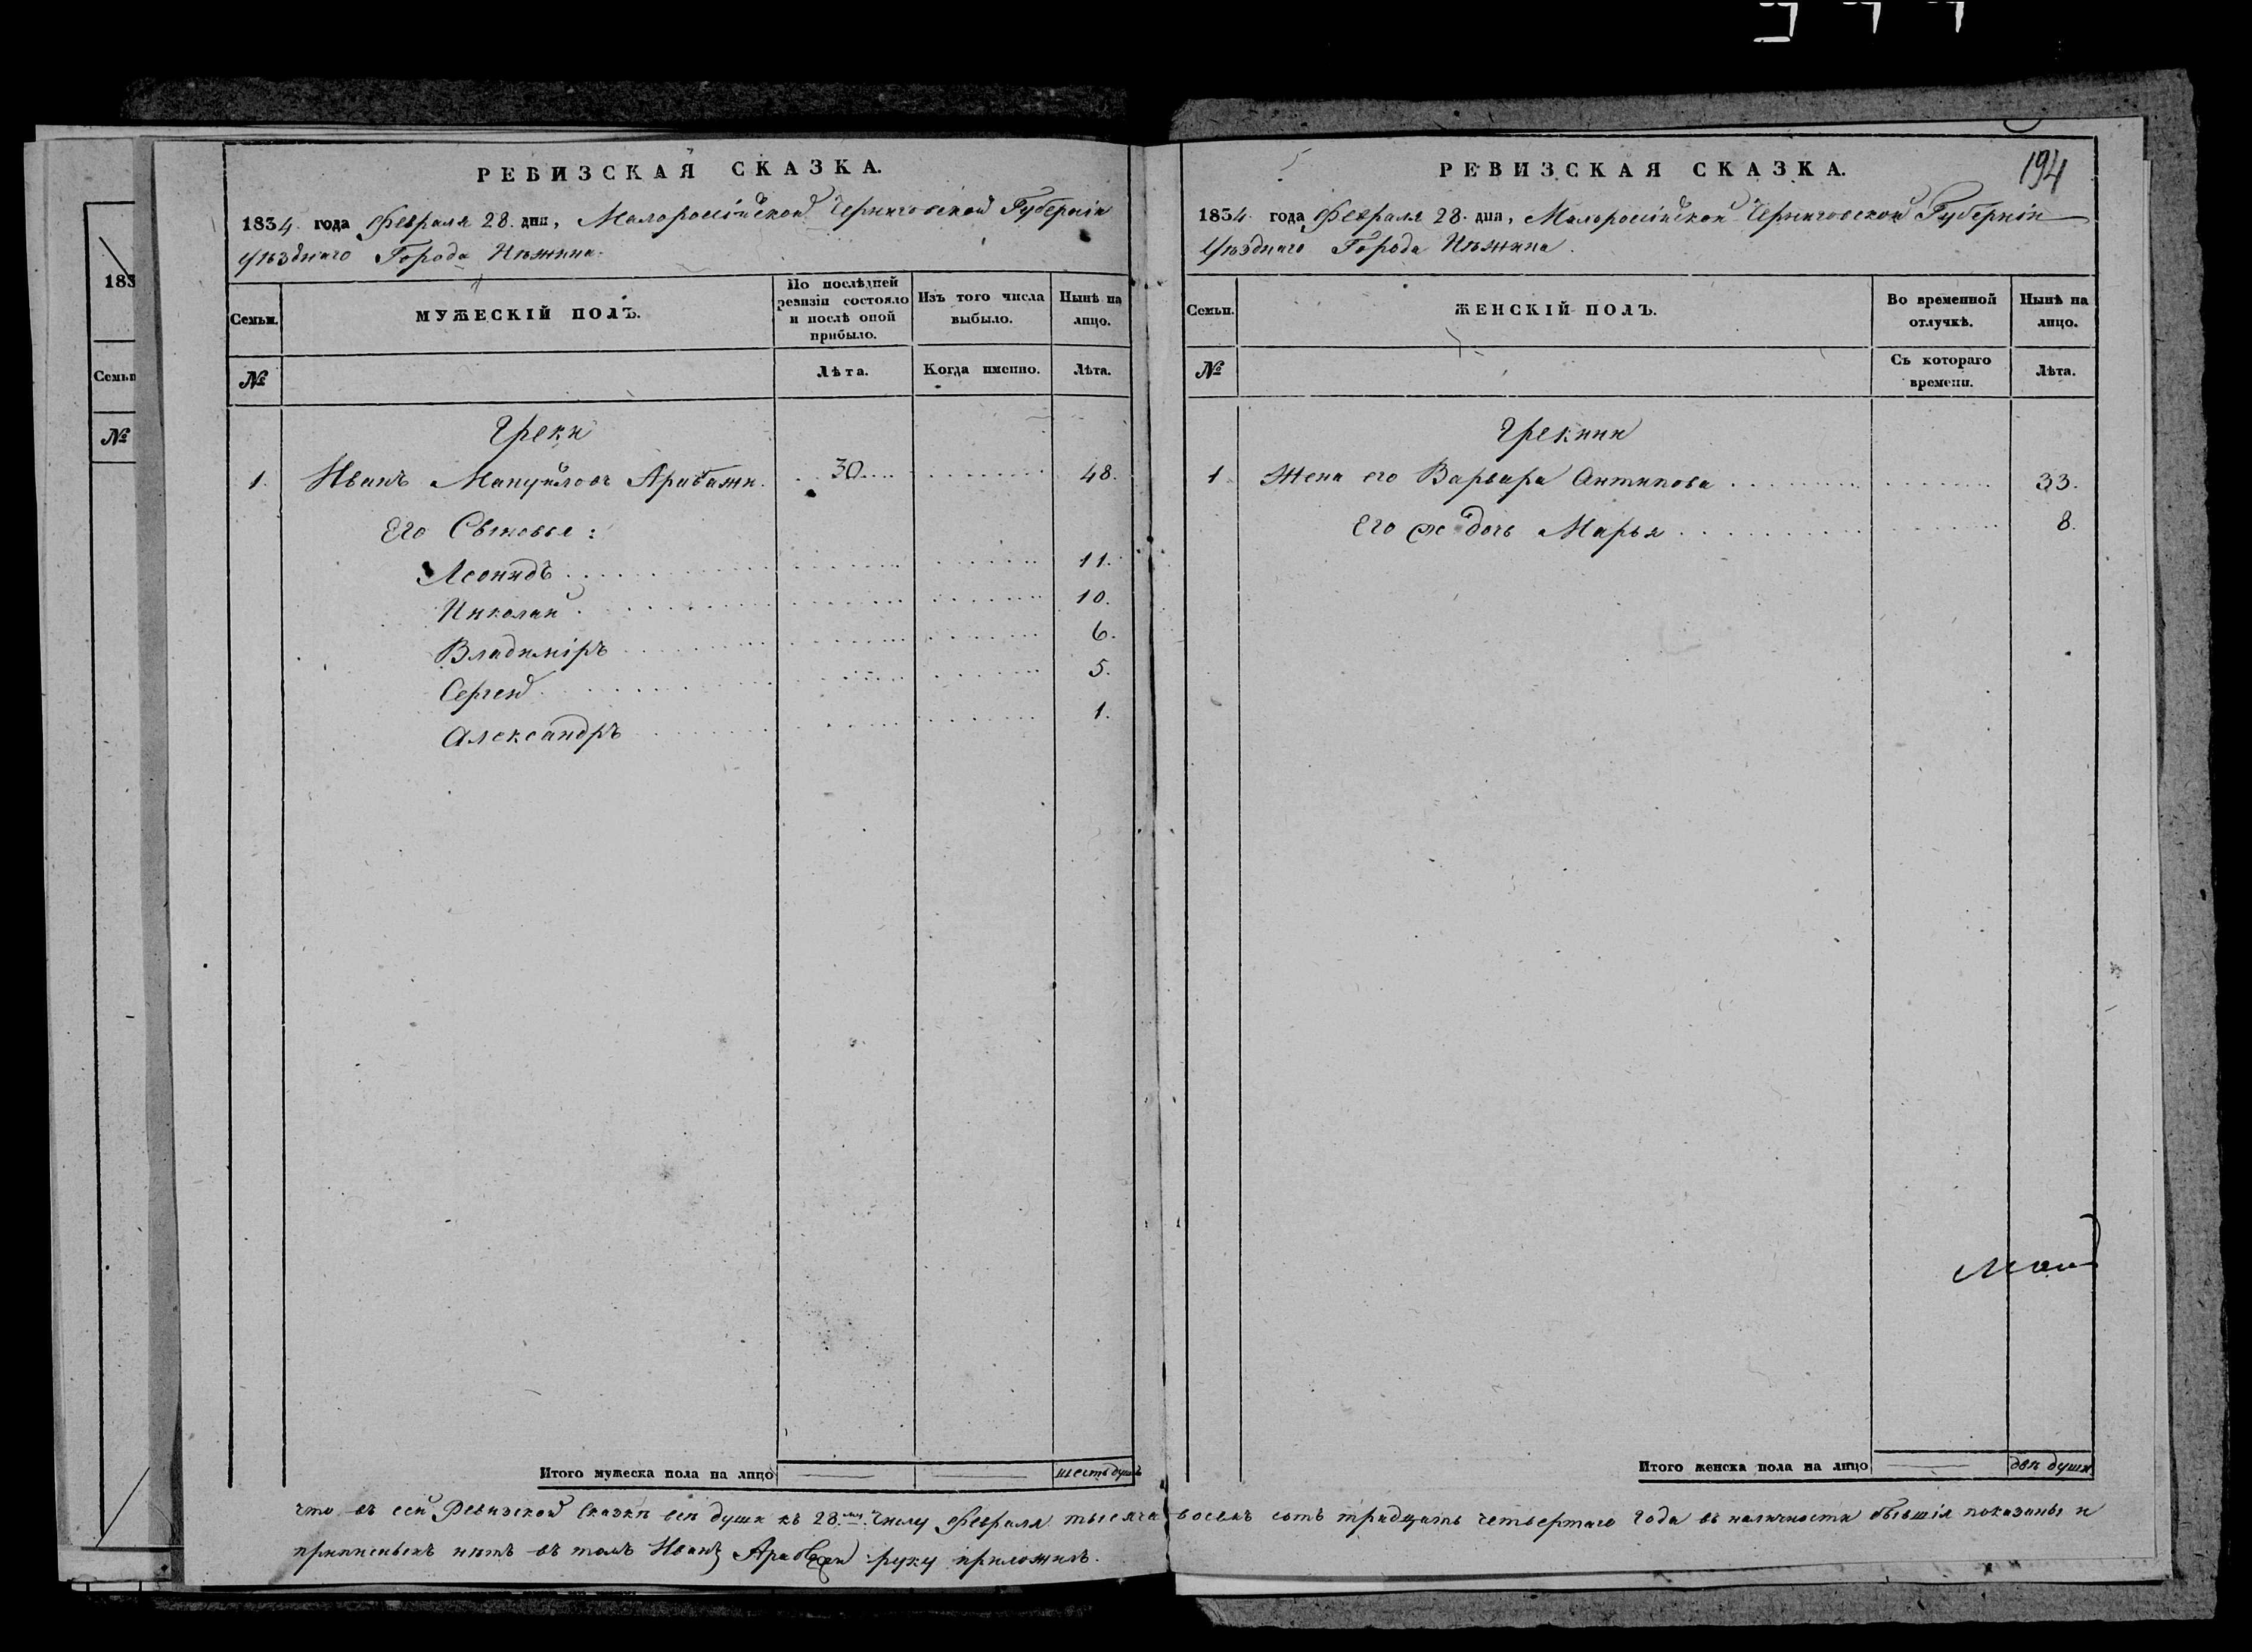 РЕВИЗСКАЯ СКАЗКА.
1834 года Февраля 28. дня, Малороссійской Черниговской Губерніи
уѣзднаго Города Нѣжина.
Семьи.
МУЖЕСКІЙ ПОЛЪ.
По послѣдней ревизіи состояло и послѣ оной прибыло.
Изъ того числа выбыло.
Нынѣ на лицо.
№
Лѣта.
Когда именно.
Лѣта.
Греки
1. Иванъ Мануйловъ Арабажи. 30 48.
Его Сыновья:
Леонидъ 11.
Николай 10.
Владиміръ 6.
Сергей 5.
Александръ 1.
Итого мужеска пола на лицо шесть душъ
РЕВИЗСКАЯ СКАЗКА.
194
1834 года Февраля 28. дня, Малороссійской Черниговской Губерніи
Уѣзднаго Города Нѣжина.
Семьи.
ЖЕНСКІЙ ПОЛЪ.
Во временной отлучкѣ.
Нынѣ на лицо.
№
Съ котораго времени.
Лѣта.
Грекини
1 Жена его Варвара Антипова 33.
Его же дочь Марья 8.
Итого женска пола на лицо двѣ души
что въ сей Ревизской Сказкѣ всѣ души къ 28.му числу Февраля тысяча восемь сотъ тридцать четвертаго года въ наличности бывшія показаны и
прописныхъ нѣтъ въ томъ Иванъ руку приложилъ.
183
Семьи
№